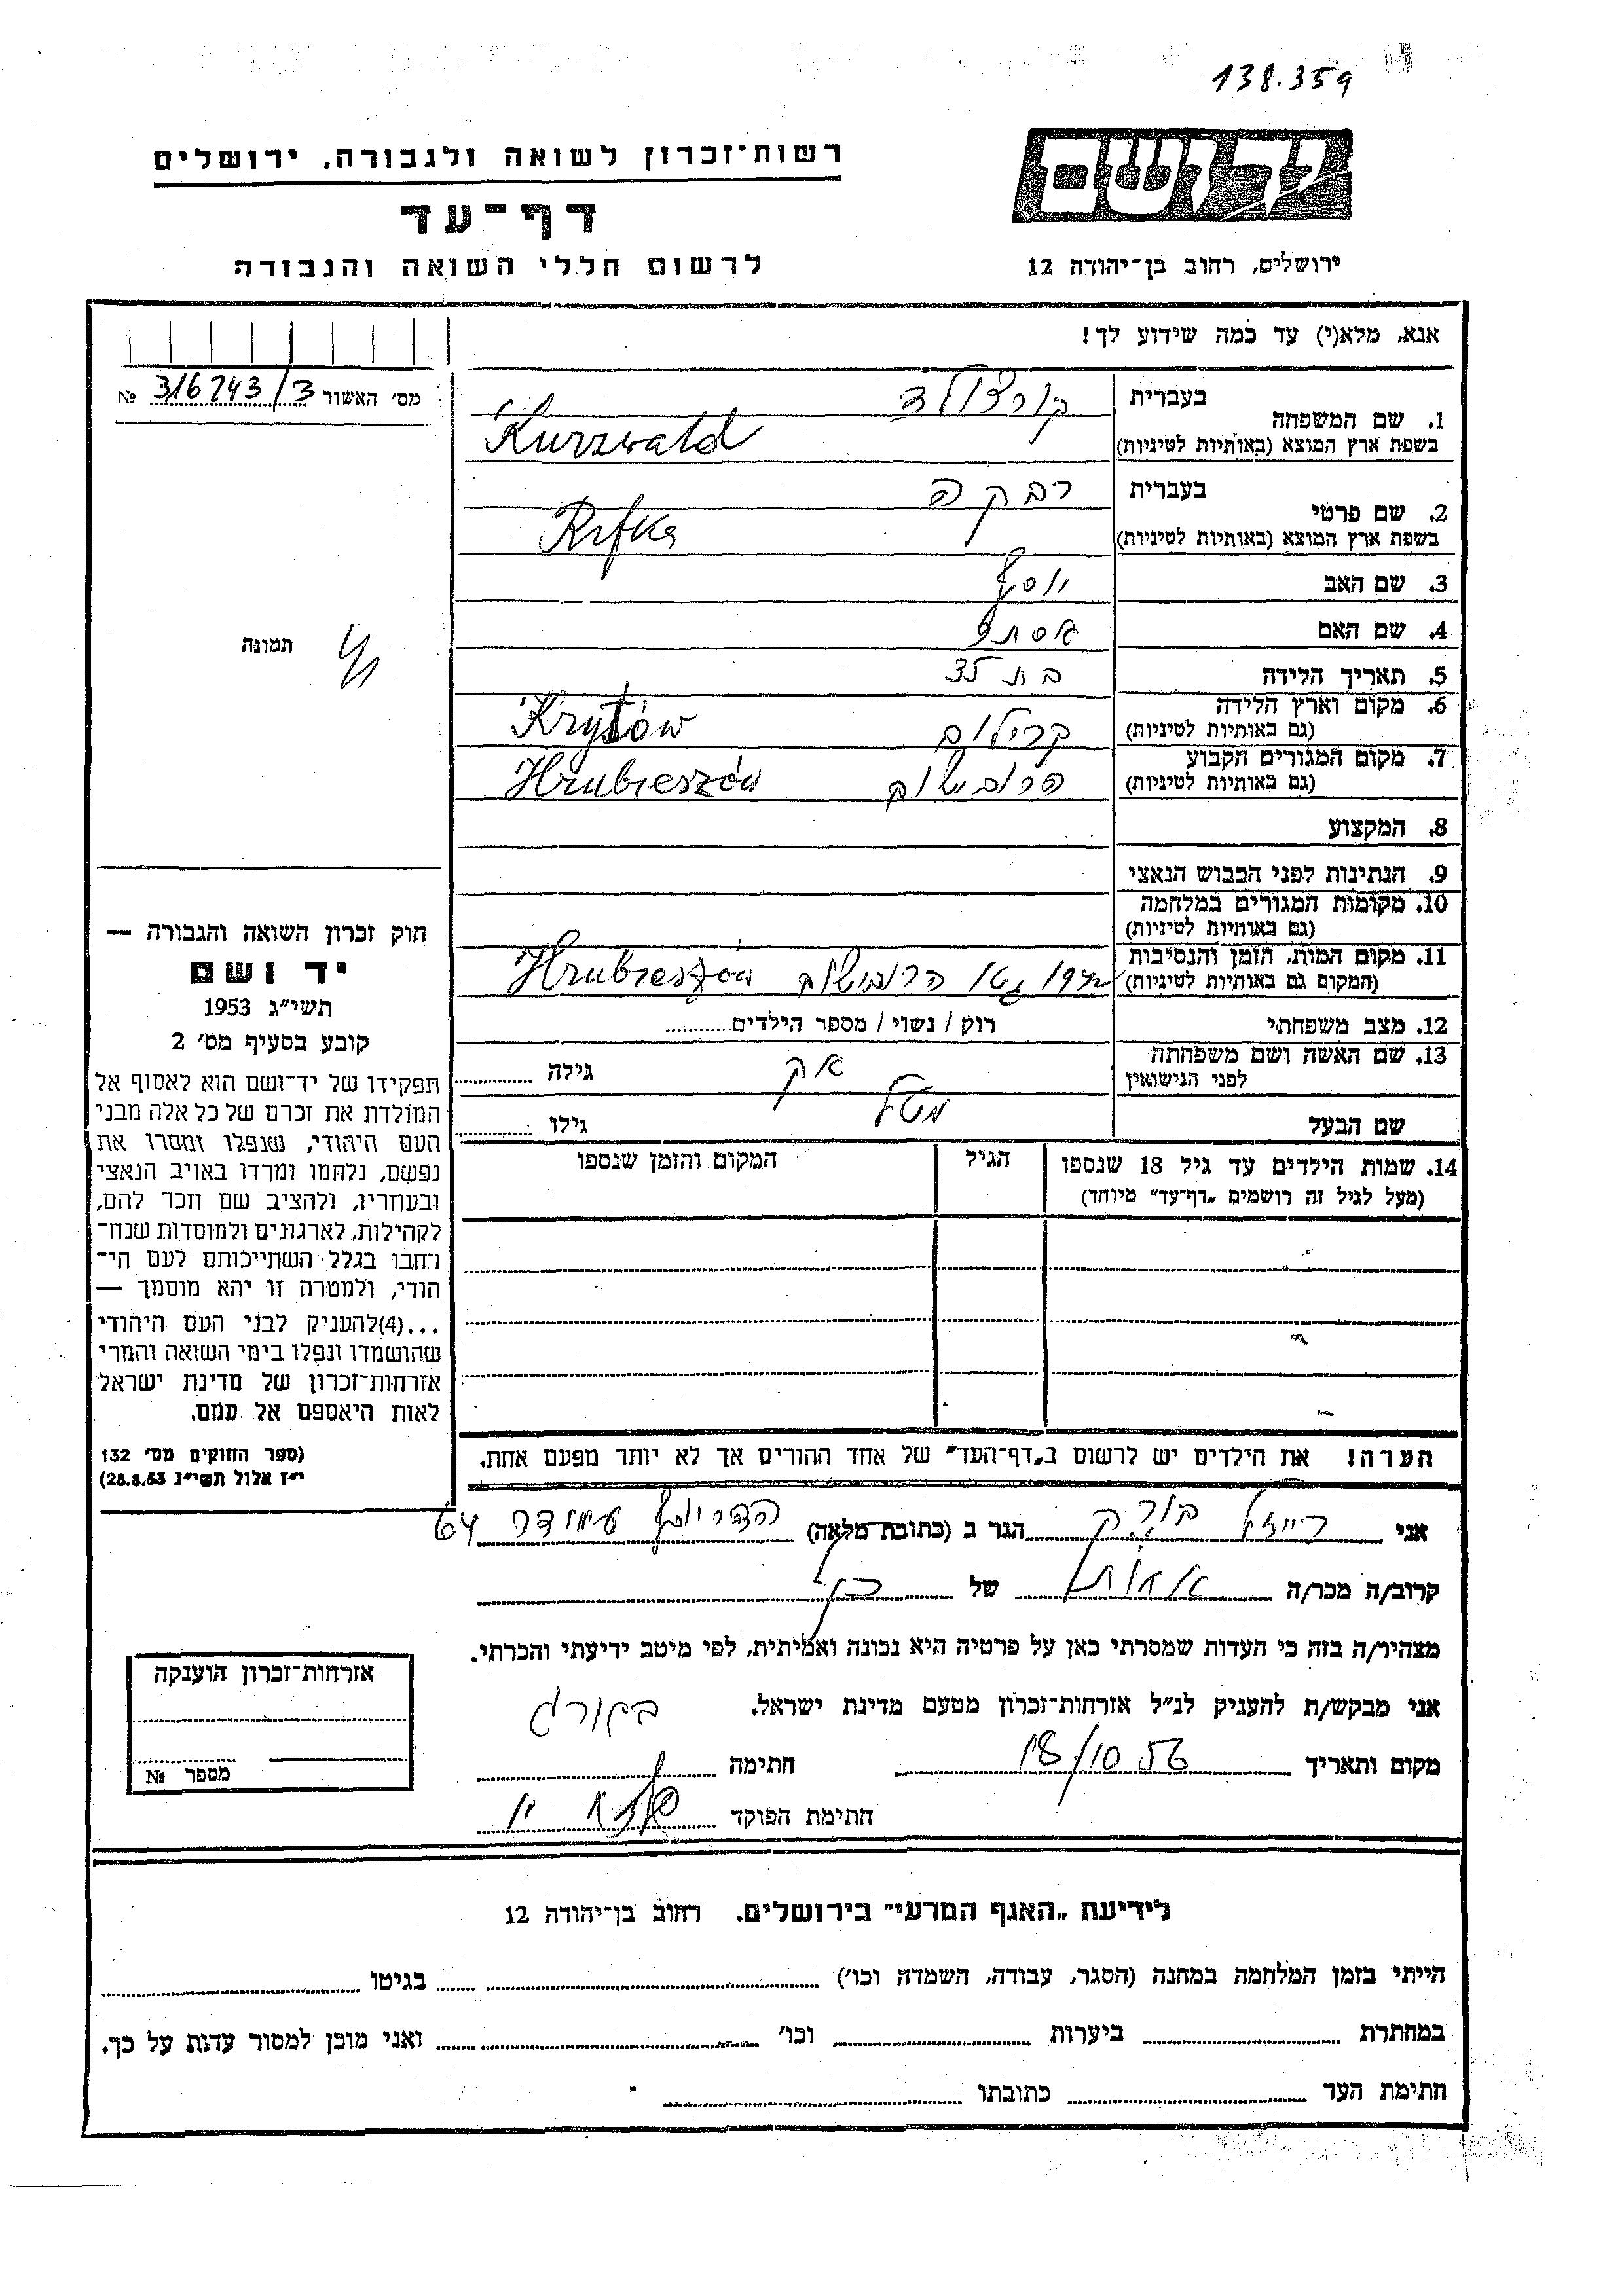 138.359
יד ושם
רשות־זכרון לשואה ולגבורה, ירושלים
דף־עד
לרשום חללי השואה והגבורה
ירושלים, רחוב בן־יהודה 12
אנא, מלא(י) עד כמה שידוע לך!
מס׳ האשור 316243/3 №
1. שם המשפחה
בעברית
קורצולד
בשפת ארץ המוצא (באותיות לטיניות)
Kurzwald
2. שם פרטי
בעברית
רבקה
בשפת ארץ המוצא (באותיות לטיניות)
Rifka
3. שם האב יוסף
4. שם האם אסתר
5. תאריך הלידה בת 35
6. מקום וארץ הלידה
(גם באותיות לטיניות)
קרילוב Kryłów
7. מקום המגורים הקבוע
(גם באותיות לטיניות)
הרובשוב Hrubieszów
8. המקצוע
9. הנתינות לפני הכבוש הנאצי
10. מקומות המגורים במלחמה
(גם באותיות לטיניות)
11. מקום המות, הזמן והנסיבות
(המקום גם באותיות לטיניות)
גטו הרובשוב Hrubieszów
12. מצב משפחתי רוק / נשוי / מספר הילדים
13. שם האשה ושם משפחתה
לפני הנישואין
גילה
שם הבעל
גילו
14. שמות הילדים עד גיל 18 שנספו
(מעל לגיל זה רושמים „דף־עד״ מיוחד)
הגיל
המקום והזמן שנספו
הערה! את הילדים יש לרשום ב„דף־העד״ של אחד ההורים אך לא יותר מפעם אחת.
תמונה
חוק זכרון השואה והגבורה —
יד ושם
תשי״ג 1953
קובע בסעיף מס׳ 2
תפקידו של יד־ושם הוא לאסוף אל
המולדת את זכרם של כל אלה מבני
העם היהודי, שנפלו ומסרו את
נפשם, נלחמו ומרדו באויב הנאצי
ובעוזריו, ולהציב שם וזכר להם,
לקהילות, לארגונים ולמוסדות שנח־
רחבו בגלל השתייכותם לעם הי־
הודי, ולמטרה זו יהא מוסמך —
...(4)להעניק לבני העם היהודי
שהושמדו ונפלו בימי השואה והמרי
אזרחות־זכרון של מדינת ישראל
לאות היאספם אל עמם.
(ספר החוקים מס׳ 132
י״ז אלול תשי״ג 28.8.53)
אני רייזל הגר ב (כתובת מלאה) 64
קרוב/ה מכר/ה אחות של
מצהיר/ה בזה כי העדות שמסרתי כאן על פרטיה היא נכונה ואמיתית, לפי מיטב ידיעתי והכרתי.
אני מבקש/ת להעניק לנ״ל אזרחות־זכרון מטעם מדינת ישראל.
מקום ותאריך 18/10 56 חתימה
חתימת הפוקד
אזרחות־זכרון הוענקה
מספר №
לידיעת „האגף המדעי״ בירושלים. רחוב בן־יהודה 12
הייתי בזמן המלחמה במחנה (הסגר, עבודה, השמדה וכו׳) בגיטו
במחתרת ביערות וכו׳ ואני מוכן למסור עדות על כך.
חתימת העד כתובתו